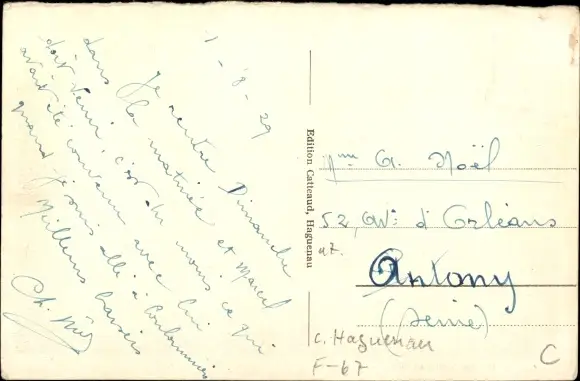 1-8-29
Je rentre Dimanche
dans la matinée et Marcel
doit venir, c'est du moins ce qui
avait été convenu avec lui
quand je suis allé à Coulommiers
Meilleurs baisers
Ch.
Edition Catteaud, Haguenau
Mme G. Noël
52, Av: d'Orléans
Antony
(Seine)
c. Haguenau
F-67
C